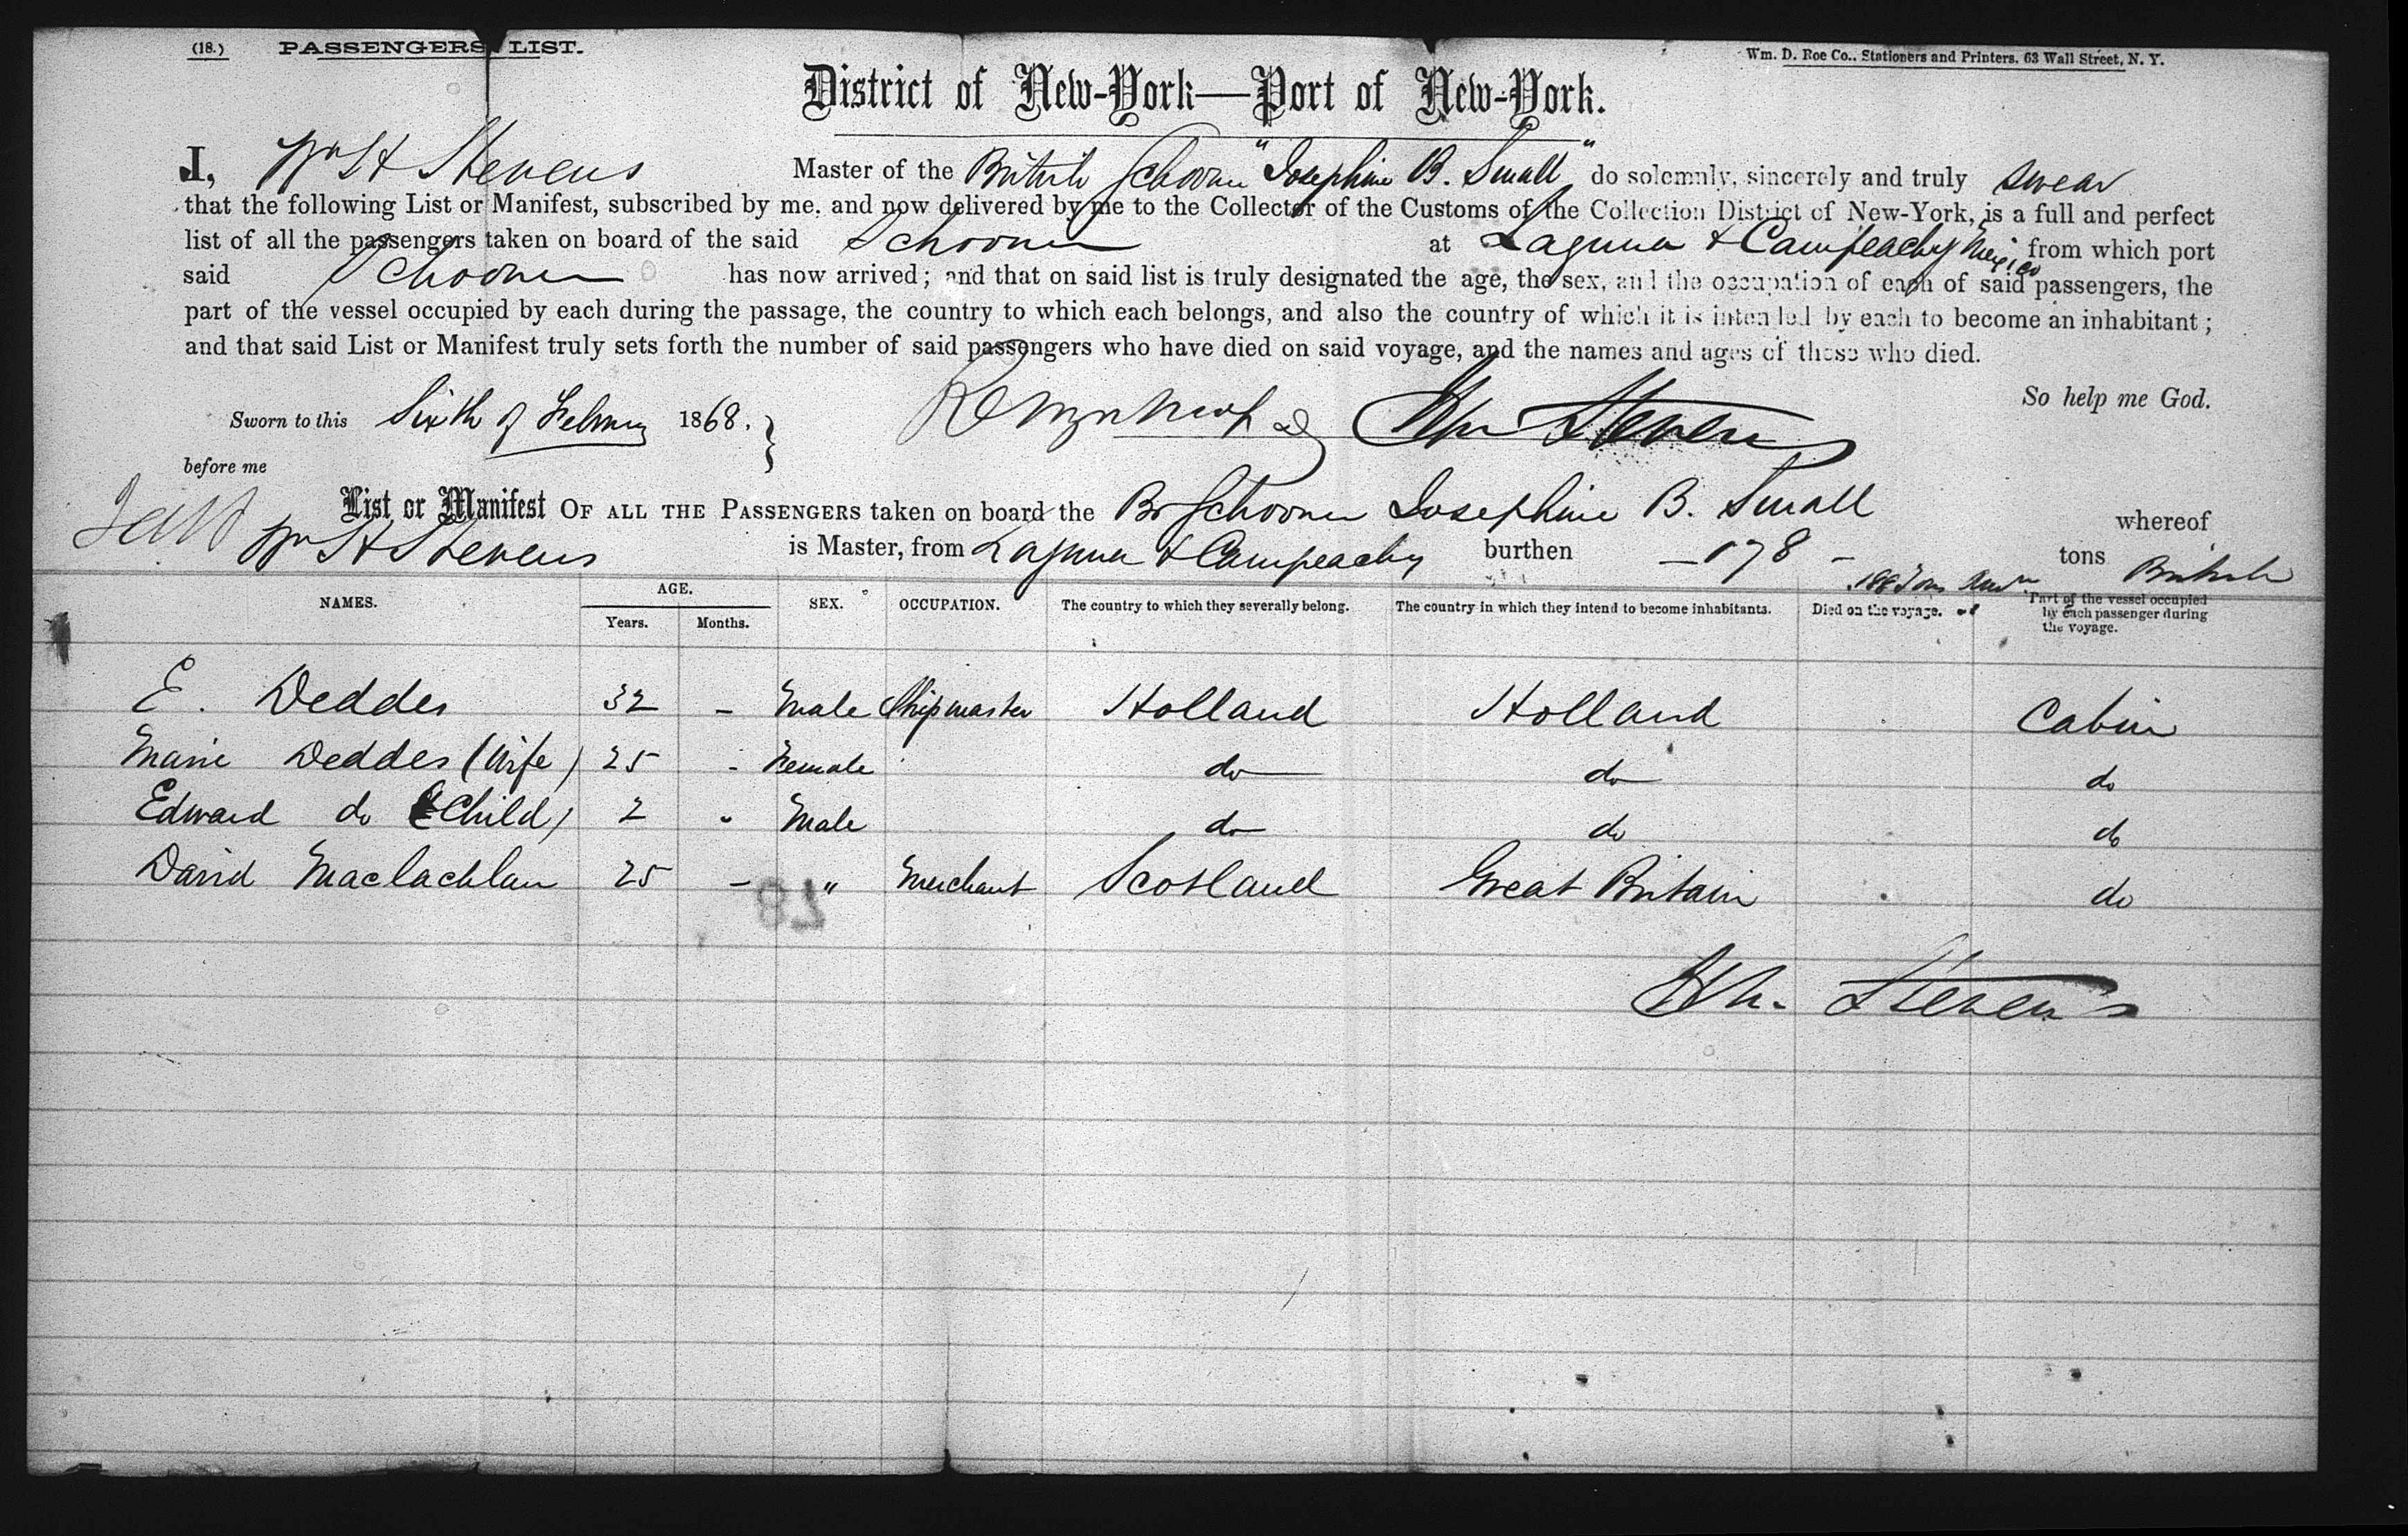 (18.) PASSENGERS LIST.
Wm. D. Roe Co., Stationers and Printers, 63 Wall Street, N. Y.
District of New-York—Port of New-York.
I, Wm H Stevens Master of the British Schooner "Josephine B. Small" do solemnly, sincerely and truly swear
that the following List or Manifest, subscribed by me, and now delivered by me to the Collector of the Customs of the Collection District of New-York, is a full and perfect
list of all the passengers taken on board of the said Schooner at Laguna & Campeachy Mexico from which port
said Schooner has now arrived; and that on said list is truly designated the age, the sex, and the occupation of each of said passengers, the
part of the vessel occupied by each during the passage, the country to which each belongs, and also the country of which it is intended by each to become an inhabitant;
and that said List or Manifest truly sets forth the number of said passengers who have died on said voyage, and the names and ages of those who died.
So help me God.
Sworn to this Sixth of February 1868. Stevens
before me
List or Manifest OF ALL THE PASSENGERS taken on board the Br Schooner Josephine B. Small whereof
Wm H Stevens is Master, from Laguna & Campeachy burthen — 178 — tons British
188 Tons
NAMES. AGE. SEX. OCCUPATION. The country to which they severally belong. The country in which they intend to become inhabitants. Died on the voyage. Part of the vessel occupied by each passenger during the voyage.
Years. Months.
E. Deddes 32 - Male Shipmaster Holland Holland Cabin
Marie Deddes (Wife) 25 - Female do do do
Edward do (Child) 2 " Male do do do
David Maclachlan 25 - " Merchant Scotland Great Britain do
28
Wm. Stevens